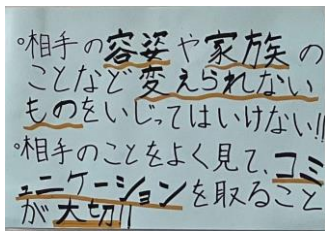 ○相手の容姿や家族の
ことなど変えられない
ものをいじってはいけない!!
○相手のことをよく見て、コミ
ュニケーションを取ること
が大切!!